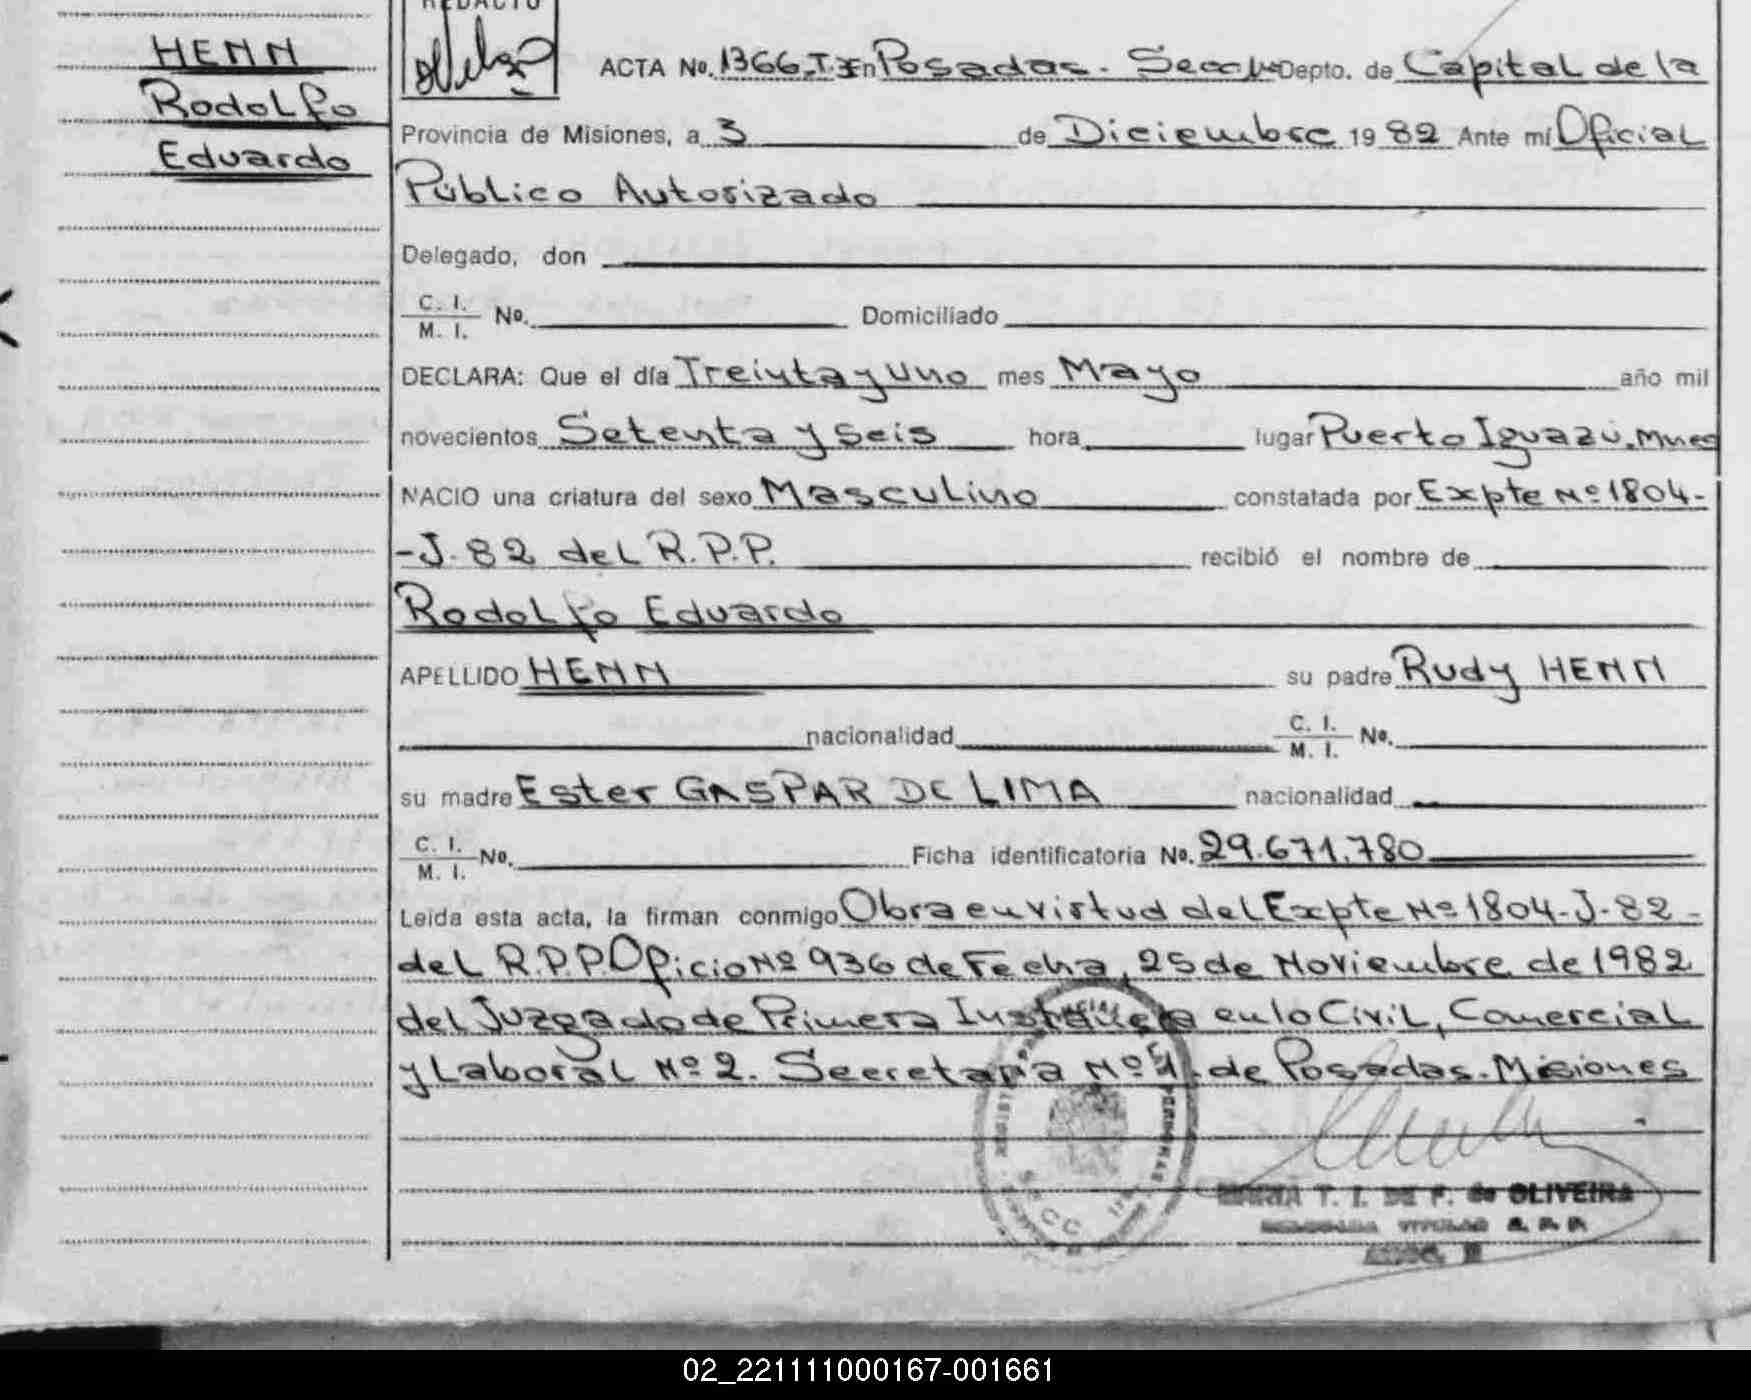 HENN
Rodolfo
Eduardo
REDACTO
ACTA No. 1366, T. En Posadas. Secc. Depto. de Capital de la
Provincia de Misiones, a 3 de Diciembre 1982 Ante mí Oficial
Público Autorizado
Delegado, don
C. I.
M. I. No. Domiciliado
DECLARA: Que el día Treinta y uno mes Mayo año mil
novecientos Setenta y seis hora lugar Puerto Iguazú. Mnes
NACIO una criatura del sexo Masculino constatada por Expte Nº 1804-
-J-82 del R.P.P. recibió el nombre de
Rodolfo Eduardo
APELLIDO HENN su padre Rudy HENN
nacionalidad C. I.
M. I. No.
su madre Ester GASPAR DE LIMA nacionalidad
C. I.
M. I. No. Ficha identificatoria No. 29.671.780
Leída esta acta, la firman conmigo Obra en virtud del Expte Nº 1804-J-82-
del R.P.P. Oficio Nº 936 de Fecha, 25 de Noviembre de 1982
del Juzgado de Primera Instancia en lo Civil, Comercial
y Laboral Nº 2. Secretaria Nº 1. de Posadas. Misiones
MARIA T. I. DE F. de OLIVEIRA
02_221111000167-001661